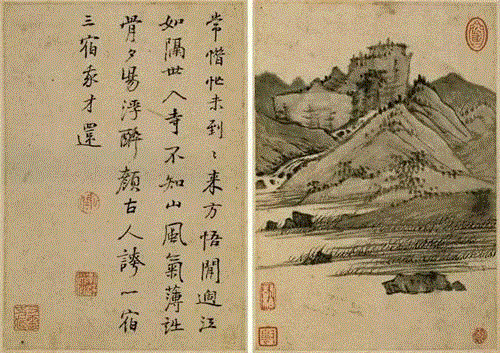 常惜忙未到〻来方悟閒過江
如隔世入寺不知山風氣薄詩
骨夕陽浮醉顏古人誇一宿
三宿我才還